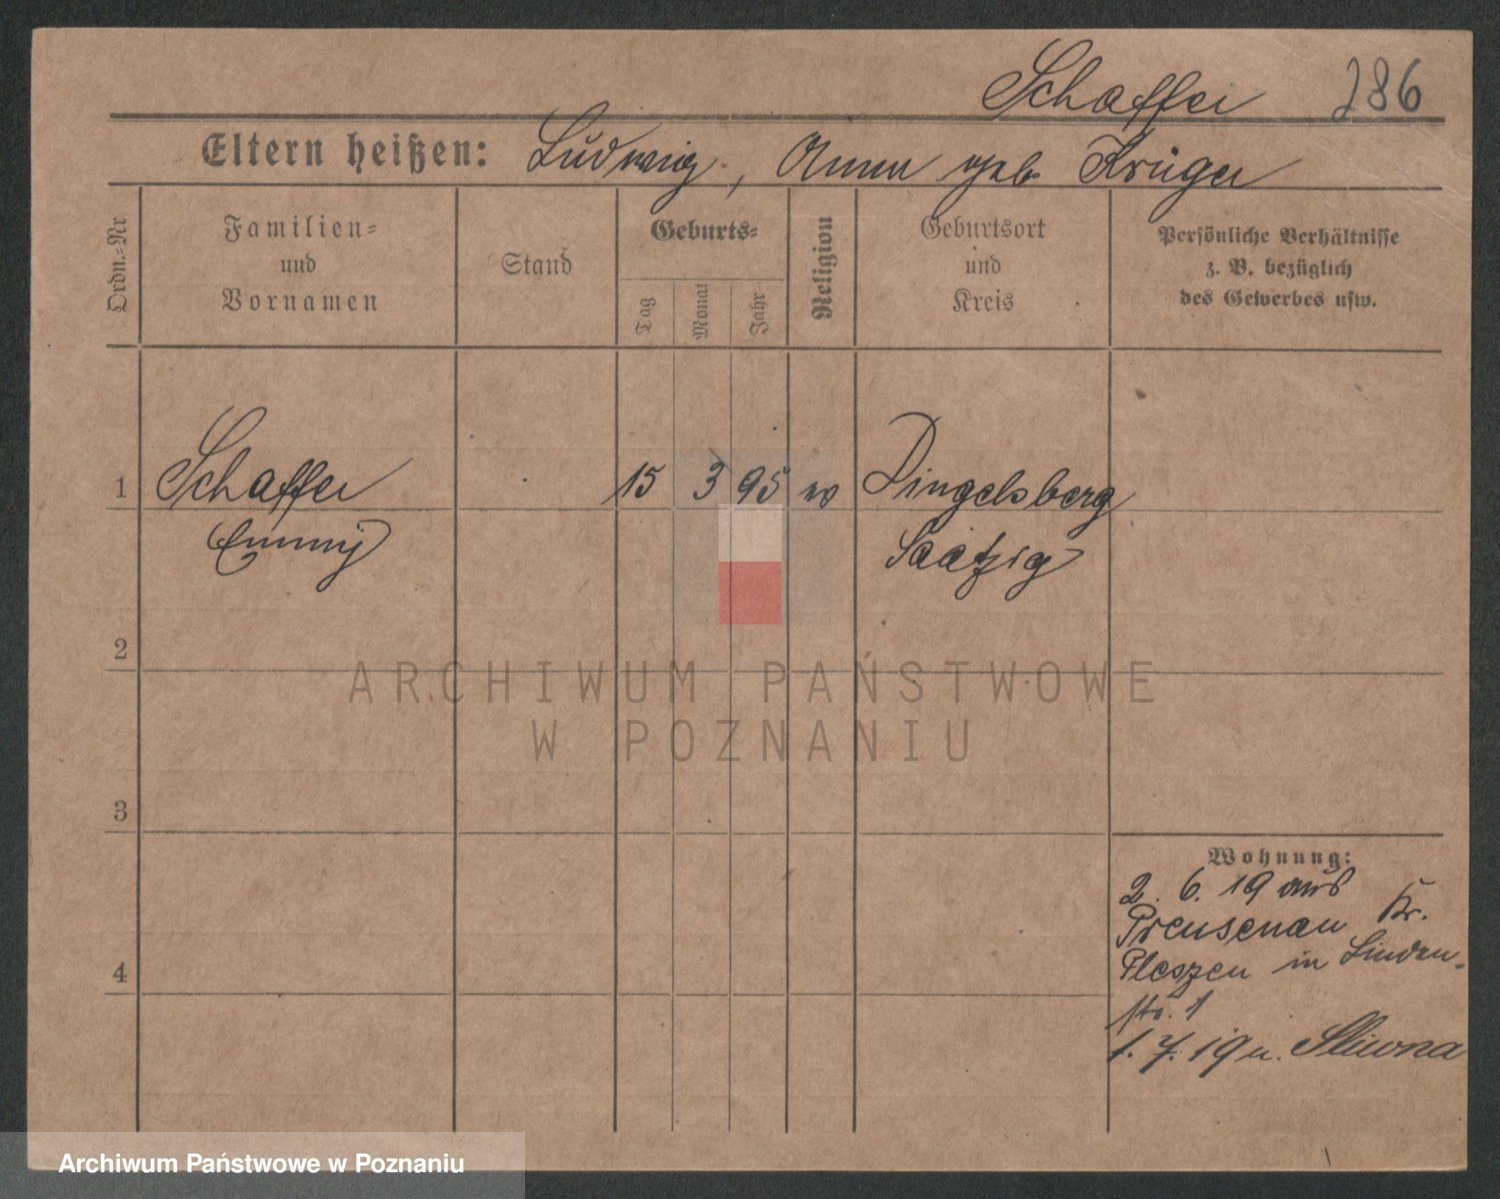 Schaffer 286
Eltern heißen: Ludwig, Anna geb. Krüger
Ordn.-Nr
Familien- und Vornamen
Stand
Geburts-
Tag Monat Jahr
Religion
Geburtsort und Kreis
Persönliche Verhältnisse
z. B. bezüglich
des Gewerbes usw.
1 Schaffer 15 3 95 Dingelsberg
Emmy Saatzig
2
ARCHIWUM PAŃSTWOWE
W POZNANIU
3
Wohnung:
2. 6. 19 aus
Preusenau Kr.
4 Pleszen in Linden-
str. 1
1. 7. 19 n. Sliwna
Archiwum Państwowe w Poznaniu